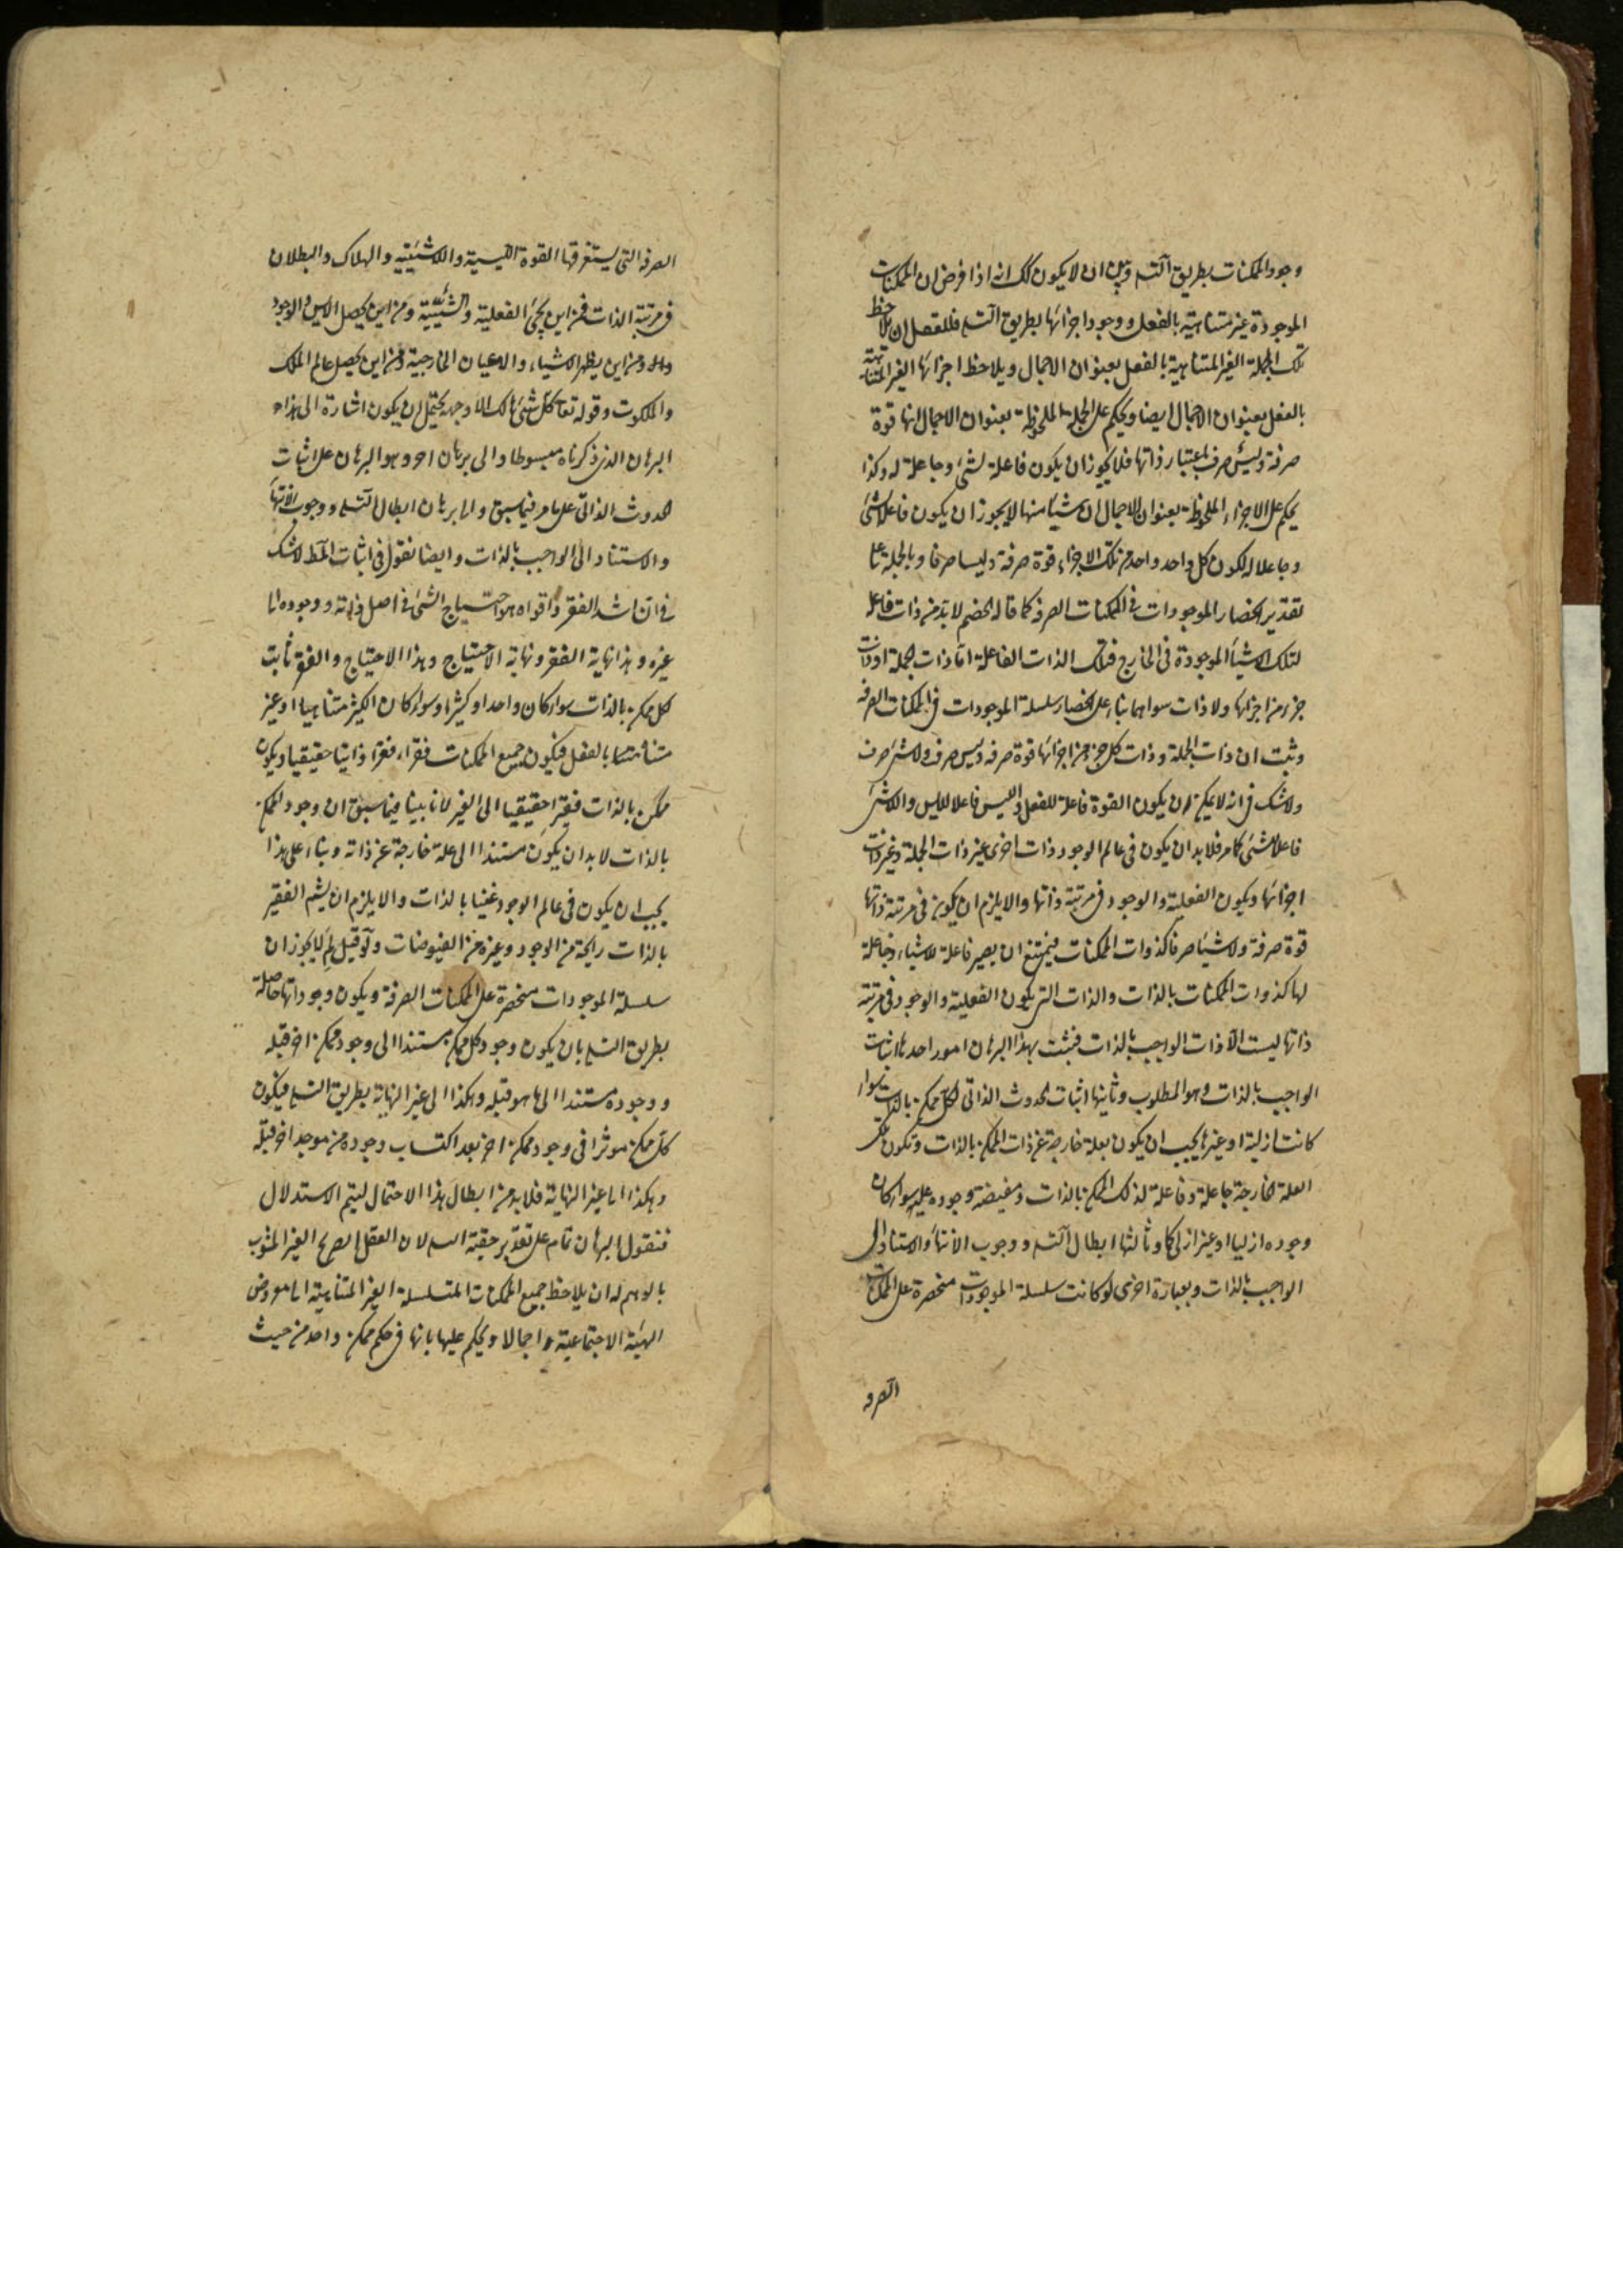 وجود الممكنات بطريق التسـ وبين ان لا يكون كك انه اذا فرض ان الممكنات
الموجودة غير متناهية بالفعل ووجود اجزائها بطريق التسـ فللعقل ان يلاحظ
تلك الجملة الغير المتناهية بالفعل بعنوان الاجمال ويلاحظ اجزائها الغير المتناهية
بالفعل بعنوان الاجمال ايضا ويحكم على الجملة الملحوظة بعنوان الاجمال انها قوة
صرفة وليس صرف باعتبار ذاتها فلا يجوز ان يكون فاعلة لشئ وجاعلة له وكذا
يحكم على الاجزاء الملحوظة بعنوان الاجمال ان شيئا منها لا يجوز ان يكون فاعلا لشئ
وجاعلا له لكون كل واحد واحد من تلك الاجزاء قوة صرفة وليسا صرفا وبالجملة على
تقدير انحصار الموجودات في الممكنات الصرفة كما قاله الخصم لا بد من ذات فاعلة
لتلك الاشياء الموجودة في الخارج فتلك الذات الفاعلة اما ذات الجملة او ذات
جزء من اجزائها ولا ذات سواهما بناء على انحصار سلسلة الموجودات في الممكنات الصرفه
وثبت ان ذات الجملة وذات كل جزء من اجزائها قوة صرفه وليس صرف ولاشئ صرف
ولا شك في انه لا يمكن ان يكون القوة فاعلة للفعل والليس فاعلا للايس واللاشئ
فاعلا لشئ كما مر فلا بد ان يكون في عالم الوجود ذات اخرى غير ذات الجملة وغير ذات
اجزائها ويكون الفعلية والوجود في مرتبة ذاتها والا يلزم ان يكون في مرتبة ذاتها
قوة صرفة ولا شيئا صرفا كذوات الممكنات فيمتنع ان يصير فاعلة للاشياء وجاعلة
لها كذوات الممكنات بالذات والذات التي يكون الفعلية والوجود في مرتبة
ذاتها ليست الا ذات الواجب بالذات فثبت بهذا البرهان امور احدها اثبات
الواجب بالذات وهو المطلوب وثانيها اثبات الحدوث الذاتي لكل ممكن بالذات سواء
كانت ازلية او غيرها يجب ان يكون بعلة خارجة عن ذات الممكن بالذات وتكون تلك
العلة الخارجة جاعلة وفاعلة لذلك الممكن بالذات ومفيضة وجوده عليه سواء كان
وجوده ازليا او غير ازلي وثالثها ابطال التسـ ووجوب الانتهاء والاستناد الى
الواجب بالذات وبعبارة اخرى لو كانت سلسلة الموجودات منحصرة على الممكنات
الصرفه
الصرفه التي يستغرقها القوة الليسية واللاشيئية والهلاك والبطلان
في مرتبة الذات فمن اين يجئ الفعلية والشيئية ومن اين يحصل الايس والوجود
ومن اين يظهر الاشياء والاعيان الخارجية ومن اين يحصل عالم الملك
والملكوت وقوله تعا كل شئ هالك الا وجهه يحتمل ان يكون اشارة الى هذا
البرهان الذي ذكرناه مبسوطا والى برهان اخر وهو البرهان على اثبات
الحدوث الذاتي على ما مر فيما سبق والى برهان ابطال التسـ ووجوب الانتهاء
والاستناد الى الواجب بالذات وايضا نقول في اثبات المط لا شك
في ان اشد الفقر واقواه هو احتياج الشئ في اصل ذاته ووجوده الى
غيره وهذا نهاية الفقر ونهاية الاحتياج وهذا الاحتياج والفقر ثابت
لكل ممكن بالذات سواء كان واحدا او كثيرا وسواء كان الكثير متناهيا او غير
متناه بالفعل فيكون جميع الممكنات فقراء فقرا ذاتيا حقيقيا ويكون
ممكن بالذات فقيرا حقيقيا الى الغير لانا بينا فيما سبق ان وجود الممكن
بالذات لا بد ان يكون مستندا الى علة خارجة عن ذاته وبناء على هذا
يجب ان يكون في عالم الوجود غنيا بالذات والا يلزم ان يشم الفقير
بالذات رايحة من الوجود وغيره من الفيوضات ولو قيل لم لا يجوز ان
سلسلة الموجودات منحصرة على الممكنات الصرفة ويكون وجوداتها حاصلة
بطريق التسـ بان يكون وجود كل ممكن مستندا الى وجود ممكن اخر قبله
ووجوده مستندا الى ما هو قبله وهكذا الى غير النهاية بطريق التسـ فيكون
كل ممكن موثرا في وجود ممكن اخر بعد اكتساب وجوده من موجد اخر قبله
وهكذا الى غير النهاية فلا بد من ابطال هذا الاحتمال ليتم الاستدلال
فنقول البرهان تمام على تقدير حقية التسـ لان العقل الصريح الغير المشوب
بالوهم له ان يلاحظ جميع الممكنات المتسلسلة الغير المتناهية المعروض
الهيئة الاجتماعية اجمالا ويحكم عليها بانها في حكم ممكن واحد من حيث